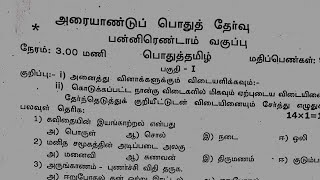 அரையாண்டுப் பொதுத் தேர்வு
பன்னிரெண்டாம் வகுப்பு
நேரம்: 3.00 மணி பொதுத்தமிழ் மதிப்பெண்கள்:
பகுதி - I
குறிப்பு:- i) அனைத்து வினாக்களுக்கும் விடையளிக்கவும்:-
ii) கொடுக்கப்பட்ட நான்கு விடைகளில் மிகவும் ஏற்புடைய விடையினை
தேர்ந்தெடுத்துக் குறியீட்டுடன் விடையினையும் சேர்த்து
பலவுள் தெரிக: 14×1=1
1) கவிதையின் இயங்காற்றல் என்பது
அ) பொருள் ஆ) சொல் இ) நடை ஈ) ஒலி
2) மனித சமூகத்தின் அடிப்படை அலகு
அ) மனைவி ஆ) கணவன் இ) திருமணம் ஈ)
3) அருங்காணம் - புணர்ச்சி விதி தருக.
அ) ஈறுபோதல்